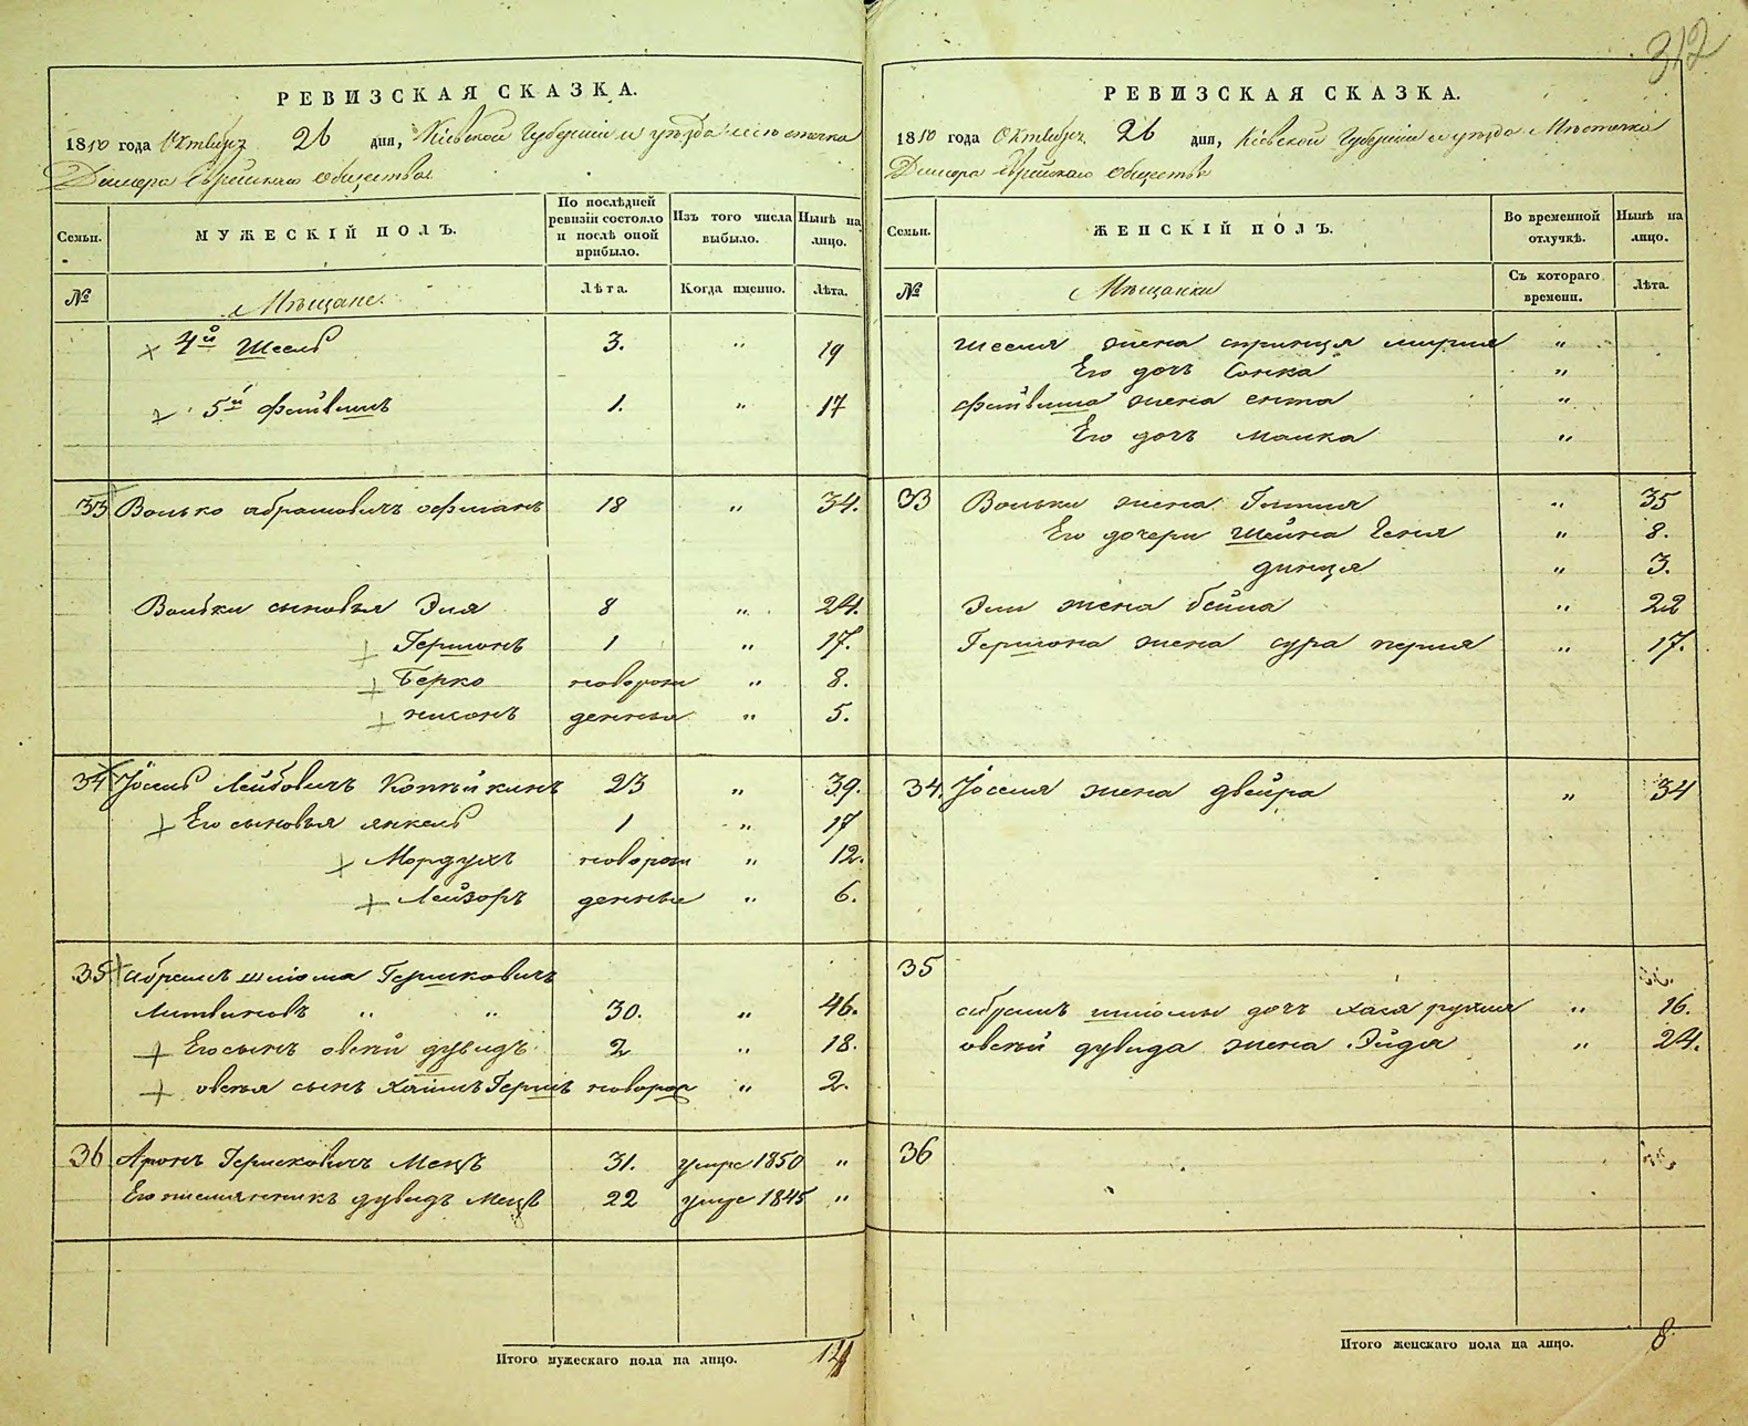 312
РЕВИЗСКАЯ СКАЗКА.
1850 года Октября 26 дня, Кіевской Губерніи и уѣзда мѣстечка
Димера Еврейскаго общества
Семьи. МУЖЕСКІЙ ПОЛЪ. По послѣдней ревизіи состояло и послѣ оной прибыло. Изъ того числа выбыло. Нынѣ на лицо.
№ Мѣщане. Лѣта. Когда именно. Лѣта.
4й Шселъ 3. " 19
5й Файвишъ 1. " 17
33 Волько Абрамовичъ Гофманъ 18 " 34.
Вольки сыновья Эля 8 " 24.
Гершонъ 1 " 17.
Берко новорож " 8.
Нисонъ денныя " 5.
34 Іосель Лейбовичъ Копѣйкинъ 23 " 39.
Его сыновья Янкель 1 " 17
Мордухъ новорож " 12.
Лейзоръ денные " 6.
35 Абрамъ Шлюма Гершковичъ
Литвиновъ " " 30. " 46.
Его сынъ Овсѣй Дувидъ 2 " 18.
Овсѣя сынъ Хаимъ Гершъ новорож " 2.
36 Аронъ Гершковичъ Менцъ 31. умре 1850 "
Его племянникъ Дувидъ Менцъ 22 умре 1845 "
Итого мужескаго пола на лицо. 14
РЕВИЗСКАЯ СКАЗКА.
1850 года Октября 26 дня, Кіевской Губерніи и уѣзда Мѣстечка
Димера Еврейскаго общества
Семьи. ЖЕНСКІЙ ПОЛЪ. Во временной отлучкѣ. Нынѣ на лицо.
№ Мѣщанки Съ котораго времени. Лѣта.
жена Спринця Мирля "
Его дочь Сонка "
Файвиша жена Ента "
Его дочь Малка "
33 Вольки жена Гитля " 35
Его дочери Шейна Геня " 8.
Динця " 3.
Эли жена Бейла " 22
Гершона жена Сура Перля " 17.
34. Іоселя жена Двейра " 34
35
Абрамъ Шлюмы дочь Хася Рухля " 16.
Овсѣй Дувида жена Эйдля " 24.
36
Итого женскаго пола на лицо. 8.